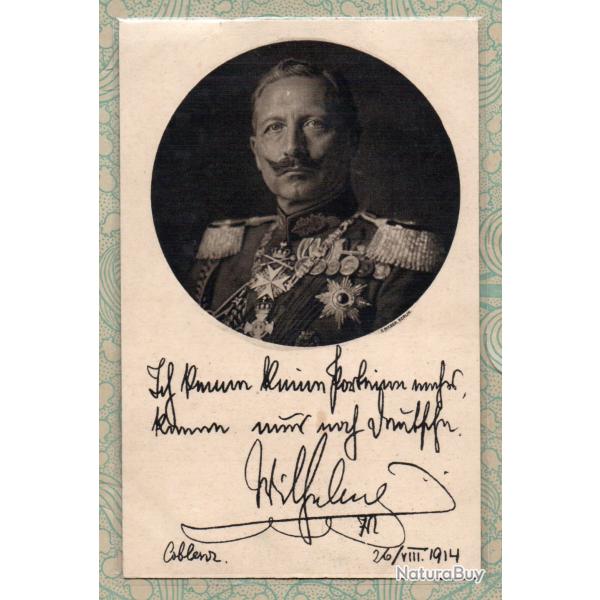 E. BIEBER, BERLIN.
Ich kenne keine Parteien mehr,
kenne nur noch Deutsche.
Wilhelm
IR
Coblenz. 26/VIII. 1914
NaturaBuy